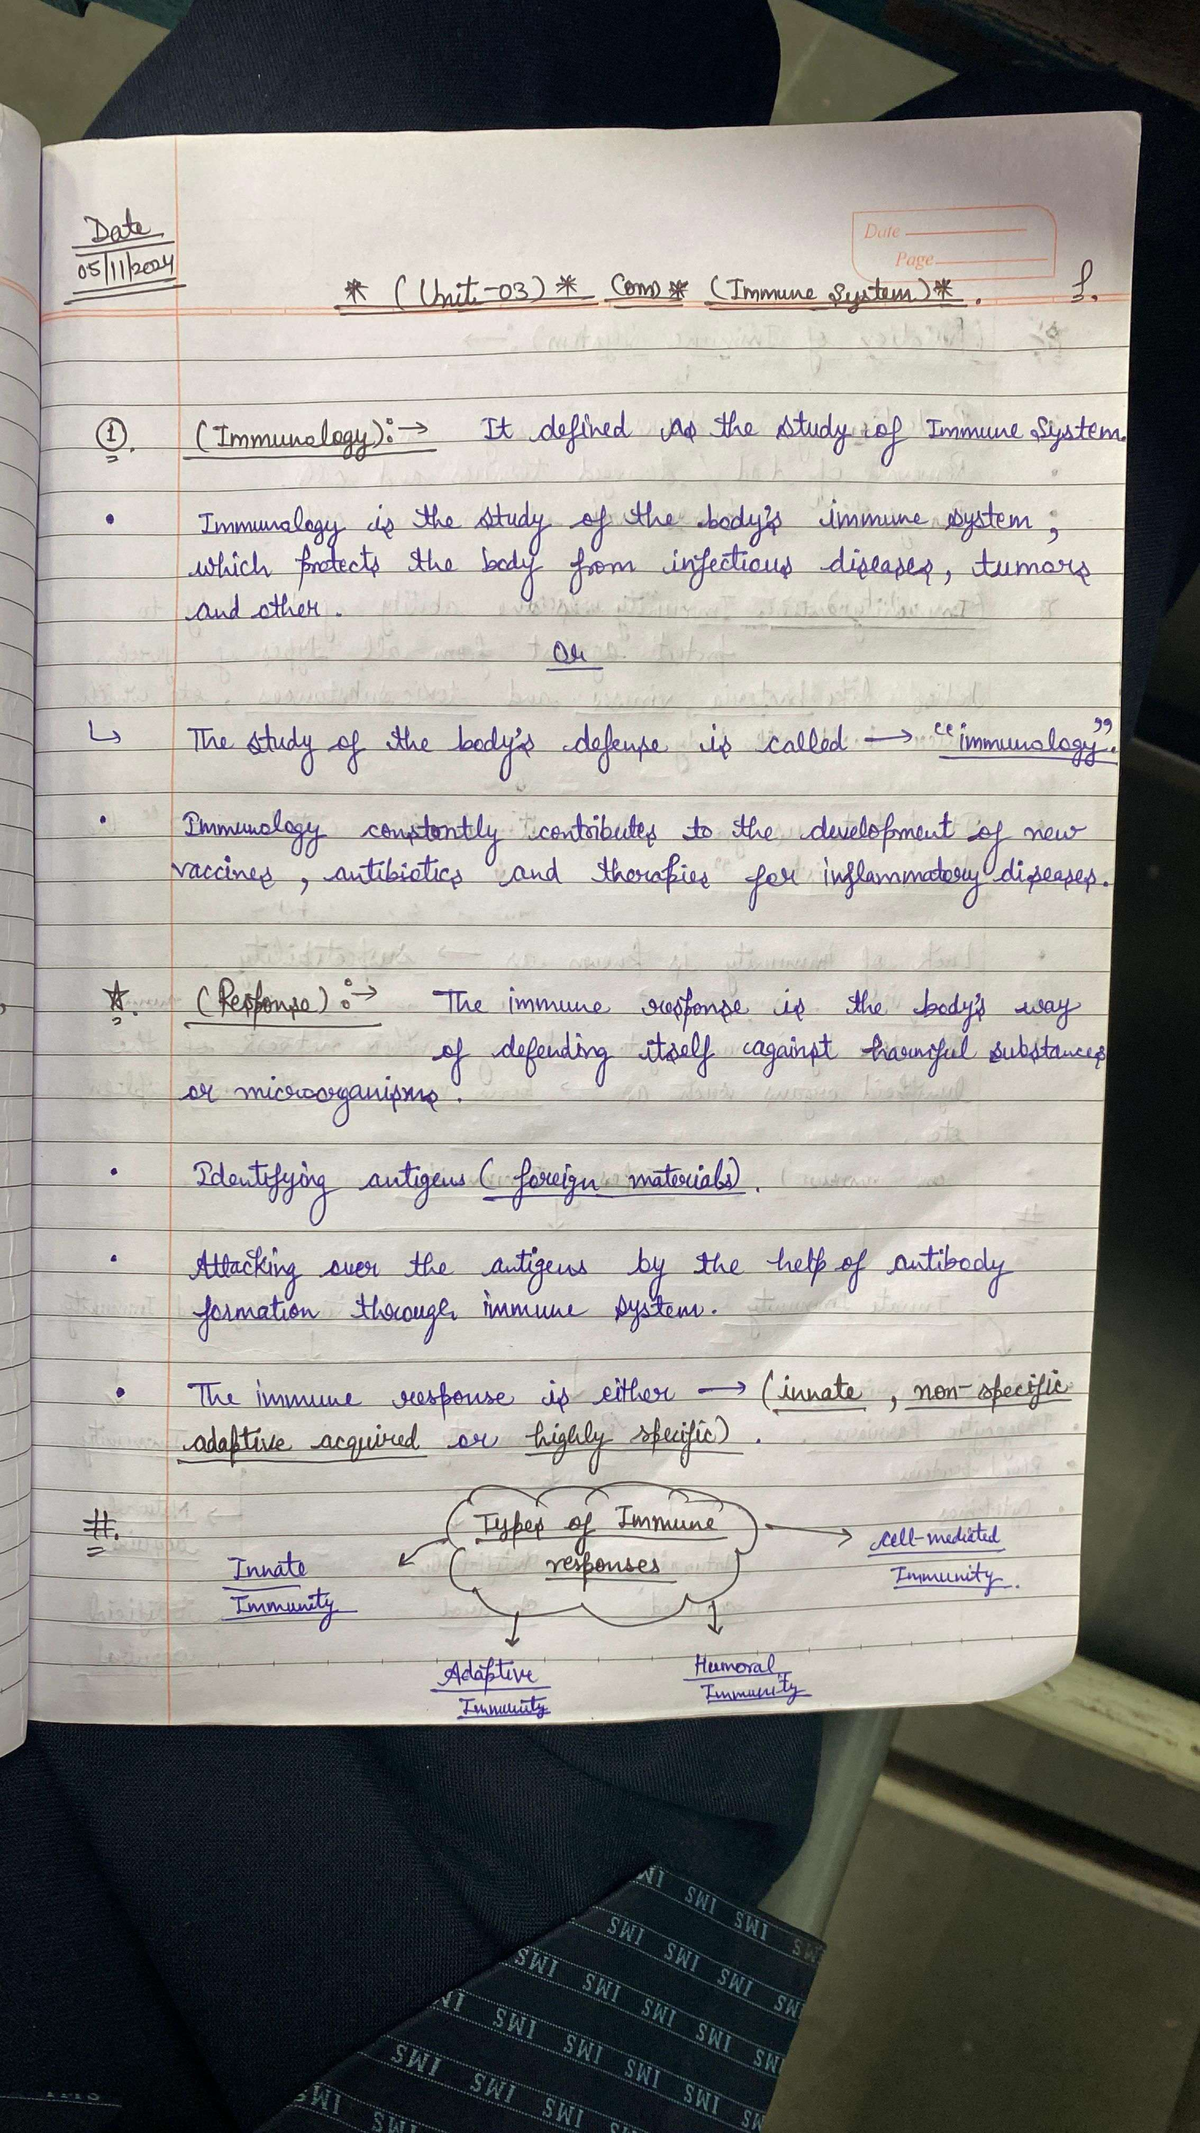 Date
05/11/2024
Date
Page
* (Unit-03) * (om) * (Immune System) * .
1. (Immunology) :→ It defined as the study of Immune System.
• Immunology is the study of the body's immune system ;
which protects the body from infectious diseases, tumors
and other .
Or
↳ The study of the body's defense is called → "immunology".
• Immunology constantly contributes to the development of new
vaccines , antibiotics and therapies for inflammatory diseases.
☆. (Response) :→ The immune response is the body's way
of defending itself against harmful substances
or microorganisms .
• Identifying antigens ( foreign materials) .
• Attacking over the antigens by the help of antibody
formation through immune system.
• The immune response is either → (innate , non-specific
adaptive acquired or highly specific) .
#. Types of Immune
responses
Innate
Immunity
cell-mediated
Immunity.
Adaptive
Immunity
Humoral
Immunity
IMS IMS IMS
IMS IMS IMS IMS
IMS IMS IMS IMS
IMS IMS IMS IMS
IMS IMS IMS